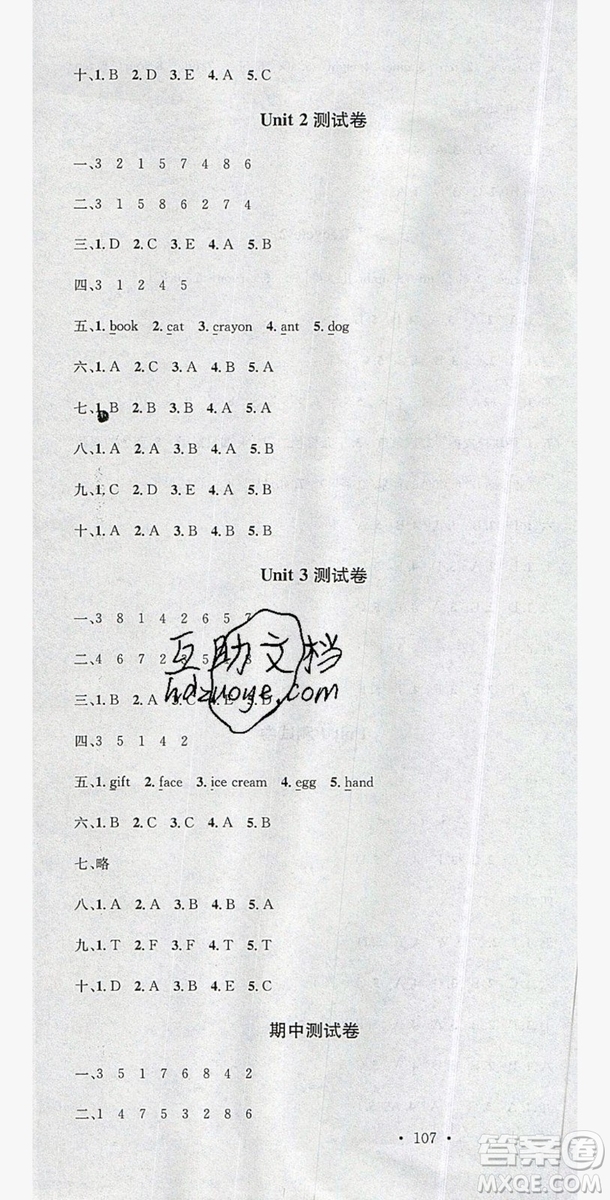 十、1.B 2.D 3.E 4.A 5.C
Unit 2 测试卷
一、3 2 1 5 7 4 8 6
二、3 1 5 8 6 2 7 4
三、1.D 2.C 3.E 4.A 5.B
四、3 1 2 4 5
五、1.book 2.cat 3.crayon 4.ant 5.dog
六、1.A 2.C 3.A 4.B 5.B
七、1.B 2.B 3.B 4.A 5.A
八、1.A 2.A 3.A 4.B 5.B
九、1.C 2.D 3.E 4.A 5.B
十、1.A 2.A 3.B 4.B 5.A
Unit 3 测试卷
一、3 8 1 4 2 6 5 7
二、4 6 7 2 3 5 1 8
三、1.B 2.C 3.A 4.E 5.D
四、3 5 1 4 2
五、1.gift 2.face 3.ice cream 4.egg 5.hand
六、1.B 2.C 3.C 4.A 5.B
七、略
八、1.A 2.A 3.B 4.B 5.A
九、1.T 2.F 3.F 4.T 5.T
十、1.D 2.A 3.B 4.E 5.C
期中测试卷
一、3 5 1 7 6 8 4 2
二、1 4 7 5 3 2 8 6
• 107 •
互助文档
hdzuoye.com
答案圈
MXQE.COM